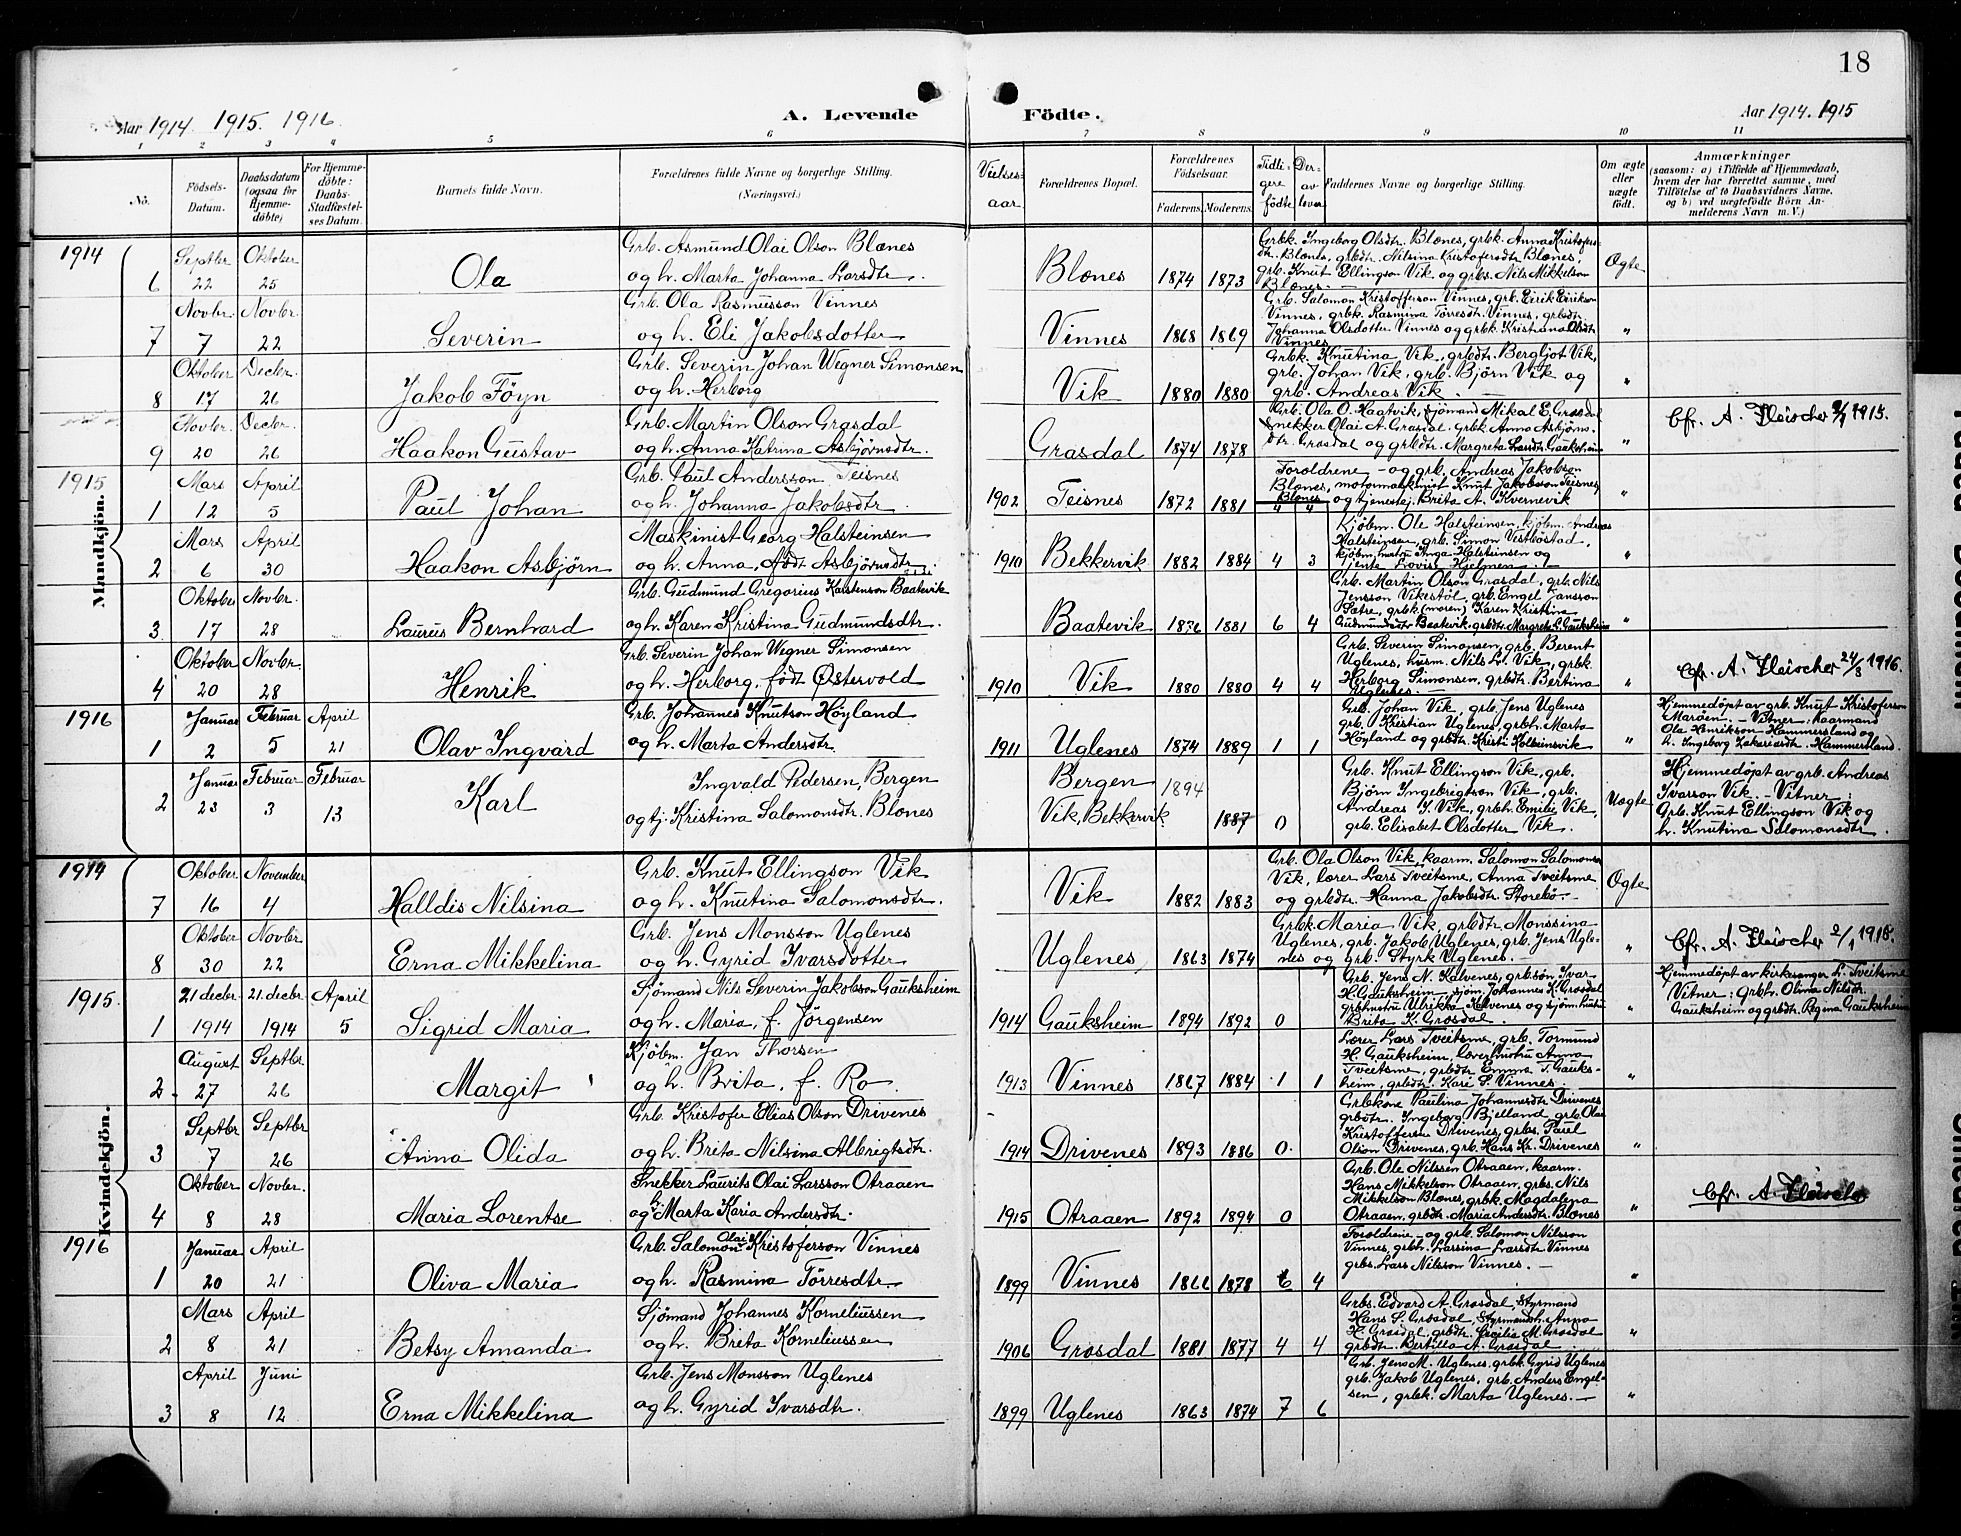 18
Aar 1914. 1915. 1916.
A. Levende Födte.
Aar 1914. 1915
1 2 3 4 5 6 7 8 9 10 11
No.
Födsels-Datum.
Daabsdatum (ogsaa for Hjemmedöbte)
For Hjemmedöbte: Daabs-Stadfæstelses Datum.
Barnets fulde Navn.
Forældrenes fulde Navne og borgerlige Stilling. (Næringsvei.)
Vielses-aar
Forældrenes Bopæl.
Forældrenes Födselsaar.
Faderens. Moderens.
Tidligere födte
Derav lever
Faddernes Navne og borgerlige Stilling.
Om ægte eller uægte födt.
Anmærkninger
(saasom: a) i Tilfælde af Hjemmedaab,
hvem der har forrettet samme, med
Tilföielse af to Daabsvidners Navne.
og b) ved uægtefödte Börn An-
melderens Navn m. V.)
Mandkjön.
1914
6 Septbr 22 Oktober 25 Ola
Grb. Asmund Olai Olson Blænes
og h. Marta Johanna Larsdtr.
Blænes 1874 1873
Grbk. Ingeborg Olsdtr. Blænes, grbk. Anna Kristofers-
dtr. Blænes, grbdtr. Nilsina Kristofersdtr Blænes,
grb. Knut Ellingson Vik og grbs. Nils Mikkelson
Blænes.
Ægte
7 Novbr. 7 Novbr. 22 Severin
Grb. Ola Rasmusson Vinnes
og h. Eli Jakobsdotter
Vinnes 1868 1869
Grb. Salomon Kristofferson Vinnes, grb. Eirik Eirikson
Vinnes, grbk. Rasmina Törresdtr. Vinnes, grbdtr.
Johanna Olsdotter Vinnes og grbk. Kristiana Olsdtr
Vinnes
"
8 Oktober 17 Decbr. 26 Jakob Föyn
Grb. Severin Johan Wegner Simonsen
og h. Herborg
Vik 1880 1880
Grbk. Knutina Vik, grbdtr. Bergljot Vik,
grb. Johan Vik, grb. Björn Vik og
grb. Andreas Vik.
"
9 Novbr. 20 Decbr. 26 Haakon Gustav
Grb. Martin Olson Grasdal
og h. Anna Katrina Asbjörnsdtr.
Grasdal 1874 1878
Grb. Ola O. Haatvik, sjömand Mikal E. Grasdal
Snekker Olai A. Grasdal. grbk. Anna Asbjörns-
dtr. Grasdal og grbdtr. Margreta Larsdtr. Gauksheim
"
Cfr. A. Fleischer 1915.
1915
1 Mars 12 April 5 Paul Johan
Grb. Paul Andersson Teisnes
og h. Johanna Jakobsdtr.
1902 Teisnes 1872 1881 4 4
Foroldrene – og grb. Andreas Jakobsen
Blænes, motormaskinist Knut Jakobsson Teisnes
og tjenestej. Brita A. Kvernevik
"
2 Mars 6 April 30 Haakon Asbjörn
Maskinist Georg Halsteinsen
og h. Anna, födt Asbjörnsdtr.
1910 Bekkervik 1882 1884 4 3
Kjöbm. Ole Halsteinsen, kjöbm. Andreas
Halsteinsen, grb. Simon Vestböstad,
kjöbm.hustru Inga Halsteinsen og
tjente Lovise Hjelmen.
"
3. Oktober 17 Novbr. 28 Laurus Bernhard
Grb. Gudmund Gregorius Karstenson Baatevik
og h. Karen Kristina Gudmundsdtr.
Baatevik 1876 1881 6 4
Grb. Martin Olson Grasdal, grb. Nils
Jensson Vikestöl, grb. Engel Jansson
Sætre, grbk. (moren) Karen Kristina
Gudmundsdtr Baatevik. grbdtr. Margreta L. Gauksheim
"
4 Oktober 20 Novbr. 28 Henrik
Grb. Severin Johan Wegner Simonsen
og h. Herborg, födt Østervold
1910 Vik 1880 1880 4 4
Grb. Severin Simonsen, grb. Berent
Uglenes, husm. Nils L. Vik, grbk.
Herborg Simonsen, grbdtr. Bertina
Uglenes.
"
Cfr. A. Fleischer 24/8 1916.
1916
1 Januar 2 Februar 5 April 21 Olav Ingvard
Grb. Johannes Knutson Höyland
og h. Marta Andersdtr.
1911 Uglenes 1874 1889 1 1
Grb. Johan Vik, grb. Jens Uglenes
grb. Kristian Uglenes, grbh. Marta
Höyland og grbdtr. Kristi Kolbeinsvik
"
Hjemmedöpt av grb. Knut Kristoferson
Maröen. – Vitner, kaarmand
Ola Henrikson Hammersland og
h. Ingeborg Zakariasdtr. Hammersland.
2 Januar 23 Februar 3 Februar 13 Karl
Ingvald Pedersen, Bergen
og tj. Kristina Salomonsdtr. Blænes
Bergen 1894
Vik, Bekkervik. 1887 0
Grb. Knut Ellingson Vik, grb.
Björn Ingebrigtson Vik, grb.
Andreas I. Vik, grbh. Emilie Vik,
grb. Elisabet Olsdotter Vik.
Uægte
Hjemmedöpt av grb. Andreas
Ivarsson Vik. – Vitner:
Grb. Knut Ellingson Vik og
h. Knutina Salomonsdtr.
Kvindekjön.
1914
7 Oktober 16 November 4 Halldis Nilsina
Grb. Knut Ellingson Vik
og h. Knutina Salomonsdtr.
Vik 1882 1883
Grb. Ola Olson Vik, kaarm. Salomon Salomonsen
Vik, lærer Lars Tveitsme, Anna Tveitsme
og grbdtr. Hanna Jakobsdtr Storebö.
Ægte
8 Oktober 30 Novbr. 22 Erna Mikkelina
Grb. Jens Monsson Uglenes
og h. Gyrid Ivarsdotter
Uglenes 1863 1874
Grbk. Maria Vik, grbdtr. Monssina
Uglenes, grb. Jakob Uglenes, grb. Jens Ugle-
nes og grb. Styrk Uglenes.
"
Cfr. A. Fleischer 2/1 1918.
1915.
1 21 decbr. 1914 21. decbr. 1914 April 5 Sigrid Maria
Sjömand Nils Severin Jakobson Gauksheim
og h. Maria, f. Jörgensen
1914 Gauksheim 1894 1892 0
Grb. Jens N. Kalvenes, grbsön Ivar
H. Gauksheim, sjöm. Johannes K. Grasdal
grbhustru Ulrikka Kalvenes og sjöm.hustru
Brita K. Grasdal.
"
Hjemmedöpt av kirkesanger L. Tveitsme
Vitner: Grbh. Olina Nilsdtr.
Gauksheim og grbdtr. Regina Gauksheim
2. August 27 Septbr. 26 Margit
Kjöbm. Jan Thorsen
og h. Brita, f. Ro
1913 Vinnes 1867 1884 1 1
Lærer Lars Tveitsme, grb. Tormund
H. Gauksheim, lærerhustru Anna
Tveitsme, grbdtr. Emma T. Gauks-
heim, grbdtr. Kari S. Vinnes.
"
3 Septbr 7 Septbr 26 Anna Olida
Grb. Kristofer Elias Olson Drivenes
og h. Brita Nilsina Albrigtsdtr.
1914 Drivenes 1893 1886 0.
Grbkone Paulina Johannesdtr Drivenes
grbdtr. Ingeborg Bjelland, grb. Olai
Kristoffersen Drivenes, grbs. Paul
Olson Drivenes, grb. Hans Kr. Drivenes
"
4 Oktober 8 Novbr. 28 Maria Lorentse
Snekker Laurits Olai Larsson Otraaen
og h. Marta Karia Andersdtr.
1915 Otraaen 1892 1894 0
Grb. Ole Nilssen Otraaen, kaarm.
Hans Mikkelson Otraaen, grbs. Nils
Mikkelson Blænes, grbk. Magdalena
Otraaen, grbdtr. Maria Andersdtr. Blænes
"
Cfr. A. Fleischer
1916
1 Januar 20 April 21 Oliva Maria
Grb. Salomon Olai Kristoferson Vinnes
og h. Rasmina Törresdtr.
1899 Vinnes 1866 1878 6 4
Foroldrene – og grb. Salomon Nilsson
Vinnes, grbh. Larsina Larsdtr Vinnes
grbs. Lars Nilsson Vinnes. –
"
2 Mars 8 April 21 Betsy Amanda
Sjömand Johannes Korneliussen
og h. Brita Korneliussen
1906 Grasdal 1881 1877 4 4
Grbs. Edvard A. Grasdal, Styrmand
Hans S. Grasdal, Styrmandh. Anna
H. Grasdal, grbdtr. Cecilia M. Grasdal
grbdtr. Bertilla A. Grasdal.
"
3 April 8 Juni 12 Erna Mikkelina
Grb. Jens Monsson Uglenes
og h. Gyrid Ivarsdtr.
1899 Uglenes 1863 1874 7 6
Grb. Jens M. Uglenes, grbk. Gyrid Uglenes
grb. Jakob Uglenes, grb. Anders Engel-
sen, grbk. Marta Uglenes. –
"